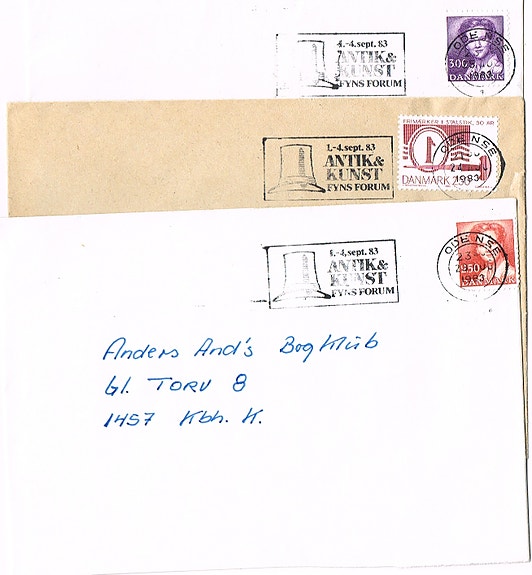 1.-4. sept. 83
ANTIK&
KUNST
FYNS FORUM
ODENSE
1983
300
DANMARK
1.-4. sept. 83
ANTIK&
KUNST
FYNS FORUM
FRIMÆRKER I STÅLSTIK, 50 ÅR
1
DANMARK 250
ODENSE
24
1983
1.-4. sept. 83
ANTIK&
KUNST
FYNS FORUM
ODENSE
23
1983
DANMARK
Anders And's Bogklub
Gl. TORV 8
1457 Kbh. K.